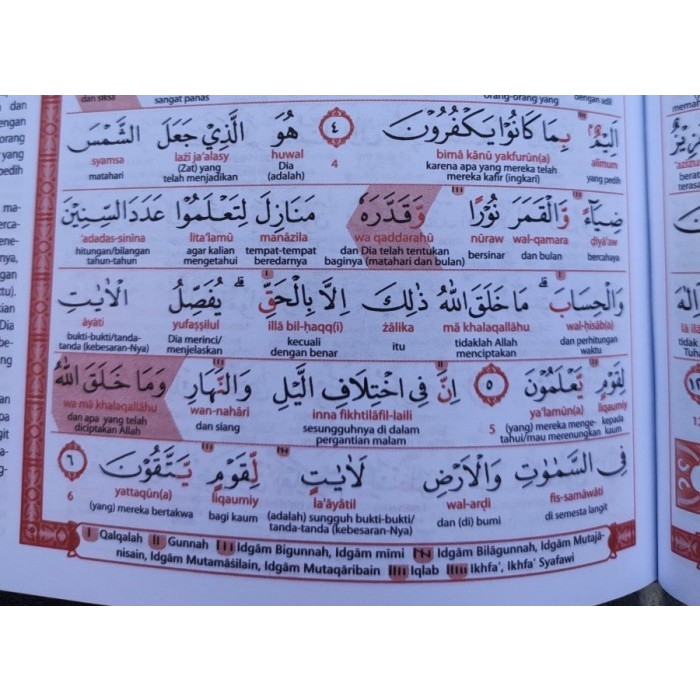 dan siksa sangat panas orang-orang yang dengan adil
اَلِيْمٌ بِمَا كَانُوْا يَكْفُرُوْنَ ٤ هُوَ الَّذِيْ جَعَلَ الشَّمْسَ
alimum bimā kānū yakfurūn(a) 4 huwal lażī ja'alasy syamsa
yang pedih karena apa yang mereka telah mereka kafir (ingkari) Dia (adalah) (Zat) yang telah menjadikan matahari
ضِيَاۤءً وَّالْقَمَرَ نُوْرًا وَّقَدَّرَهٗ مَنَازِلَ لِتَعْلَمُوْا عَدَدَ السِّنِيْنَ
ḍiyā'aw wal-qamara nūraw wa qaddarahū manāzila lita'lamū 'adadas-sinīna
bercahaya dan bulan bersinar dan Dia telah tentukan baginya (matahari dan bulan) tempat-tempat beredarnya agar kalian mengetahui hitungan/bilangan tahun-tahun
وَالْحِسَابَ ۗ مَا خَلَقَ اللّٰهُ ذٰلِكَ اِلَّا بِالْحَقِّ ۗ يُفَصِّلُ الْاٰيٰتِ
wal-ḥisāb(a) mā khalaqallāhu żālika illā bil-ḥaqq(i) yufaṣṣilul āyāti
dan perhitungan waktu tidaklah Allah menciptakan itu kecuali dengan benar Dia merinci/ menjelaskan bukti-bukti/tanda-tanda (kebesaran-Nya)
لِقَوْمٍ يَّعْلَمُوْنَ ٥ اِنَّ فِى اخْتِلَافِ الَّيْلِ وَالنَّهَارِ وَمَا خَلَقَ اللّٰهُ
liqaumiy ya'lamūn(a) 5 inna fikhtilāfil-laili wan-nahāri wa mā khalaqallāhu
kepada kaum (yang) mereka mengetahui/mau merenungkan sesungguhnya di dalam pergantian malam dan siang dan apa yang telah diciptakan Allah
فِى السَّمٰوٰتِ وَالْاَرْضِ لَاٰيٰتٍ لِّقَوْمٍ يَّتَّقُوْنَ ٦
fis-samāwāti wal-arḍi la'āyātil liqaumiy yattaqūn(a) 6
di semesta langit dan (di) bumi (adalah) sungguh bukti-bukti/ tanda-tanda (kebesaran-Nya) bagi kaum (yang) mereka bertakwa
Qalqalah Gunnah Idgām Bigunnah, Idgām mīmi Idgām Bilāgunnah, Idgam Mutajā-
nisain, Idgām Mutamāśilain, Idgām Mutaqāribain Iqlab Ikhfa', Ikhfa' Syafawi